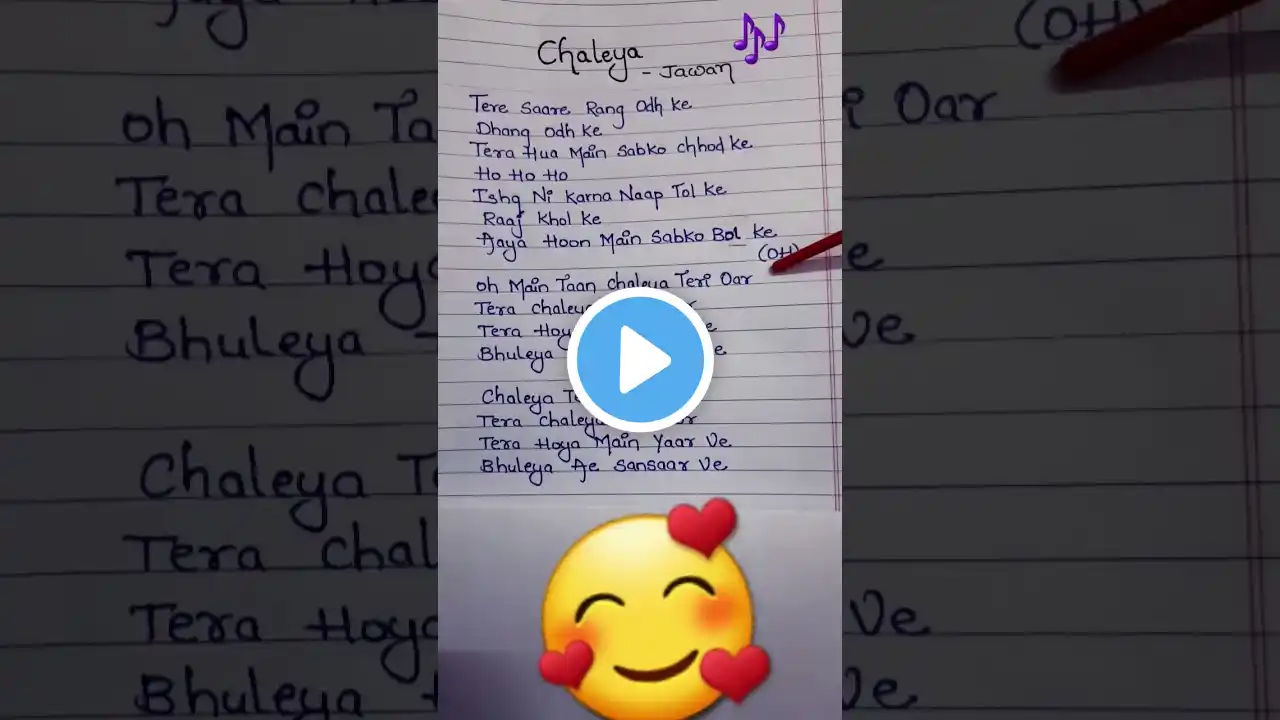 Chaleya
- Jawan
Tere Saare Rang Odh ke
Dhang Odh ke
Tera Hua Main Sabko chhod ke
Ho Ho Ho
Ishq Ni Karna Naap Tol ke
Raaj Khol ke
Aaya Hoon Main Sabko Bol ke
(OH)
Oh Main Taan Chaleya Teri Oar
Tera Chaleya
Tera Hoy
Bhuleya
Chaleya Te
Tera Chaleya
Tera Hoya Main Yaar Ve
Bhuleya Ae Sansaar Ve